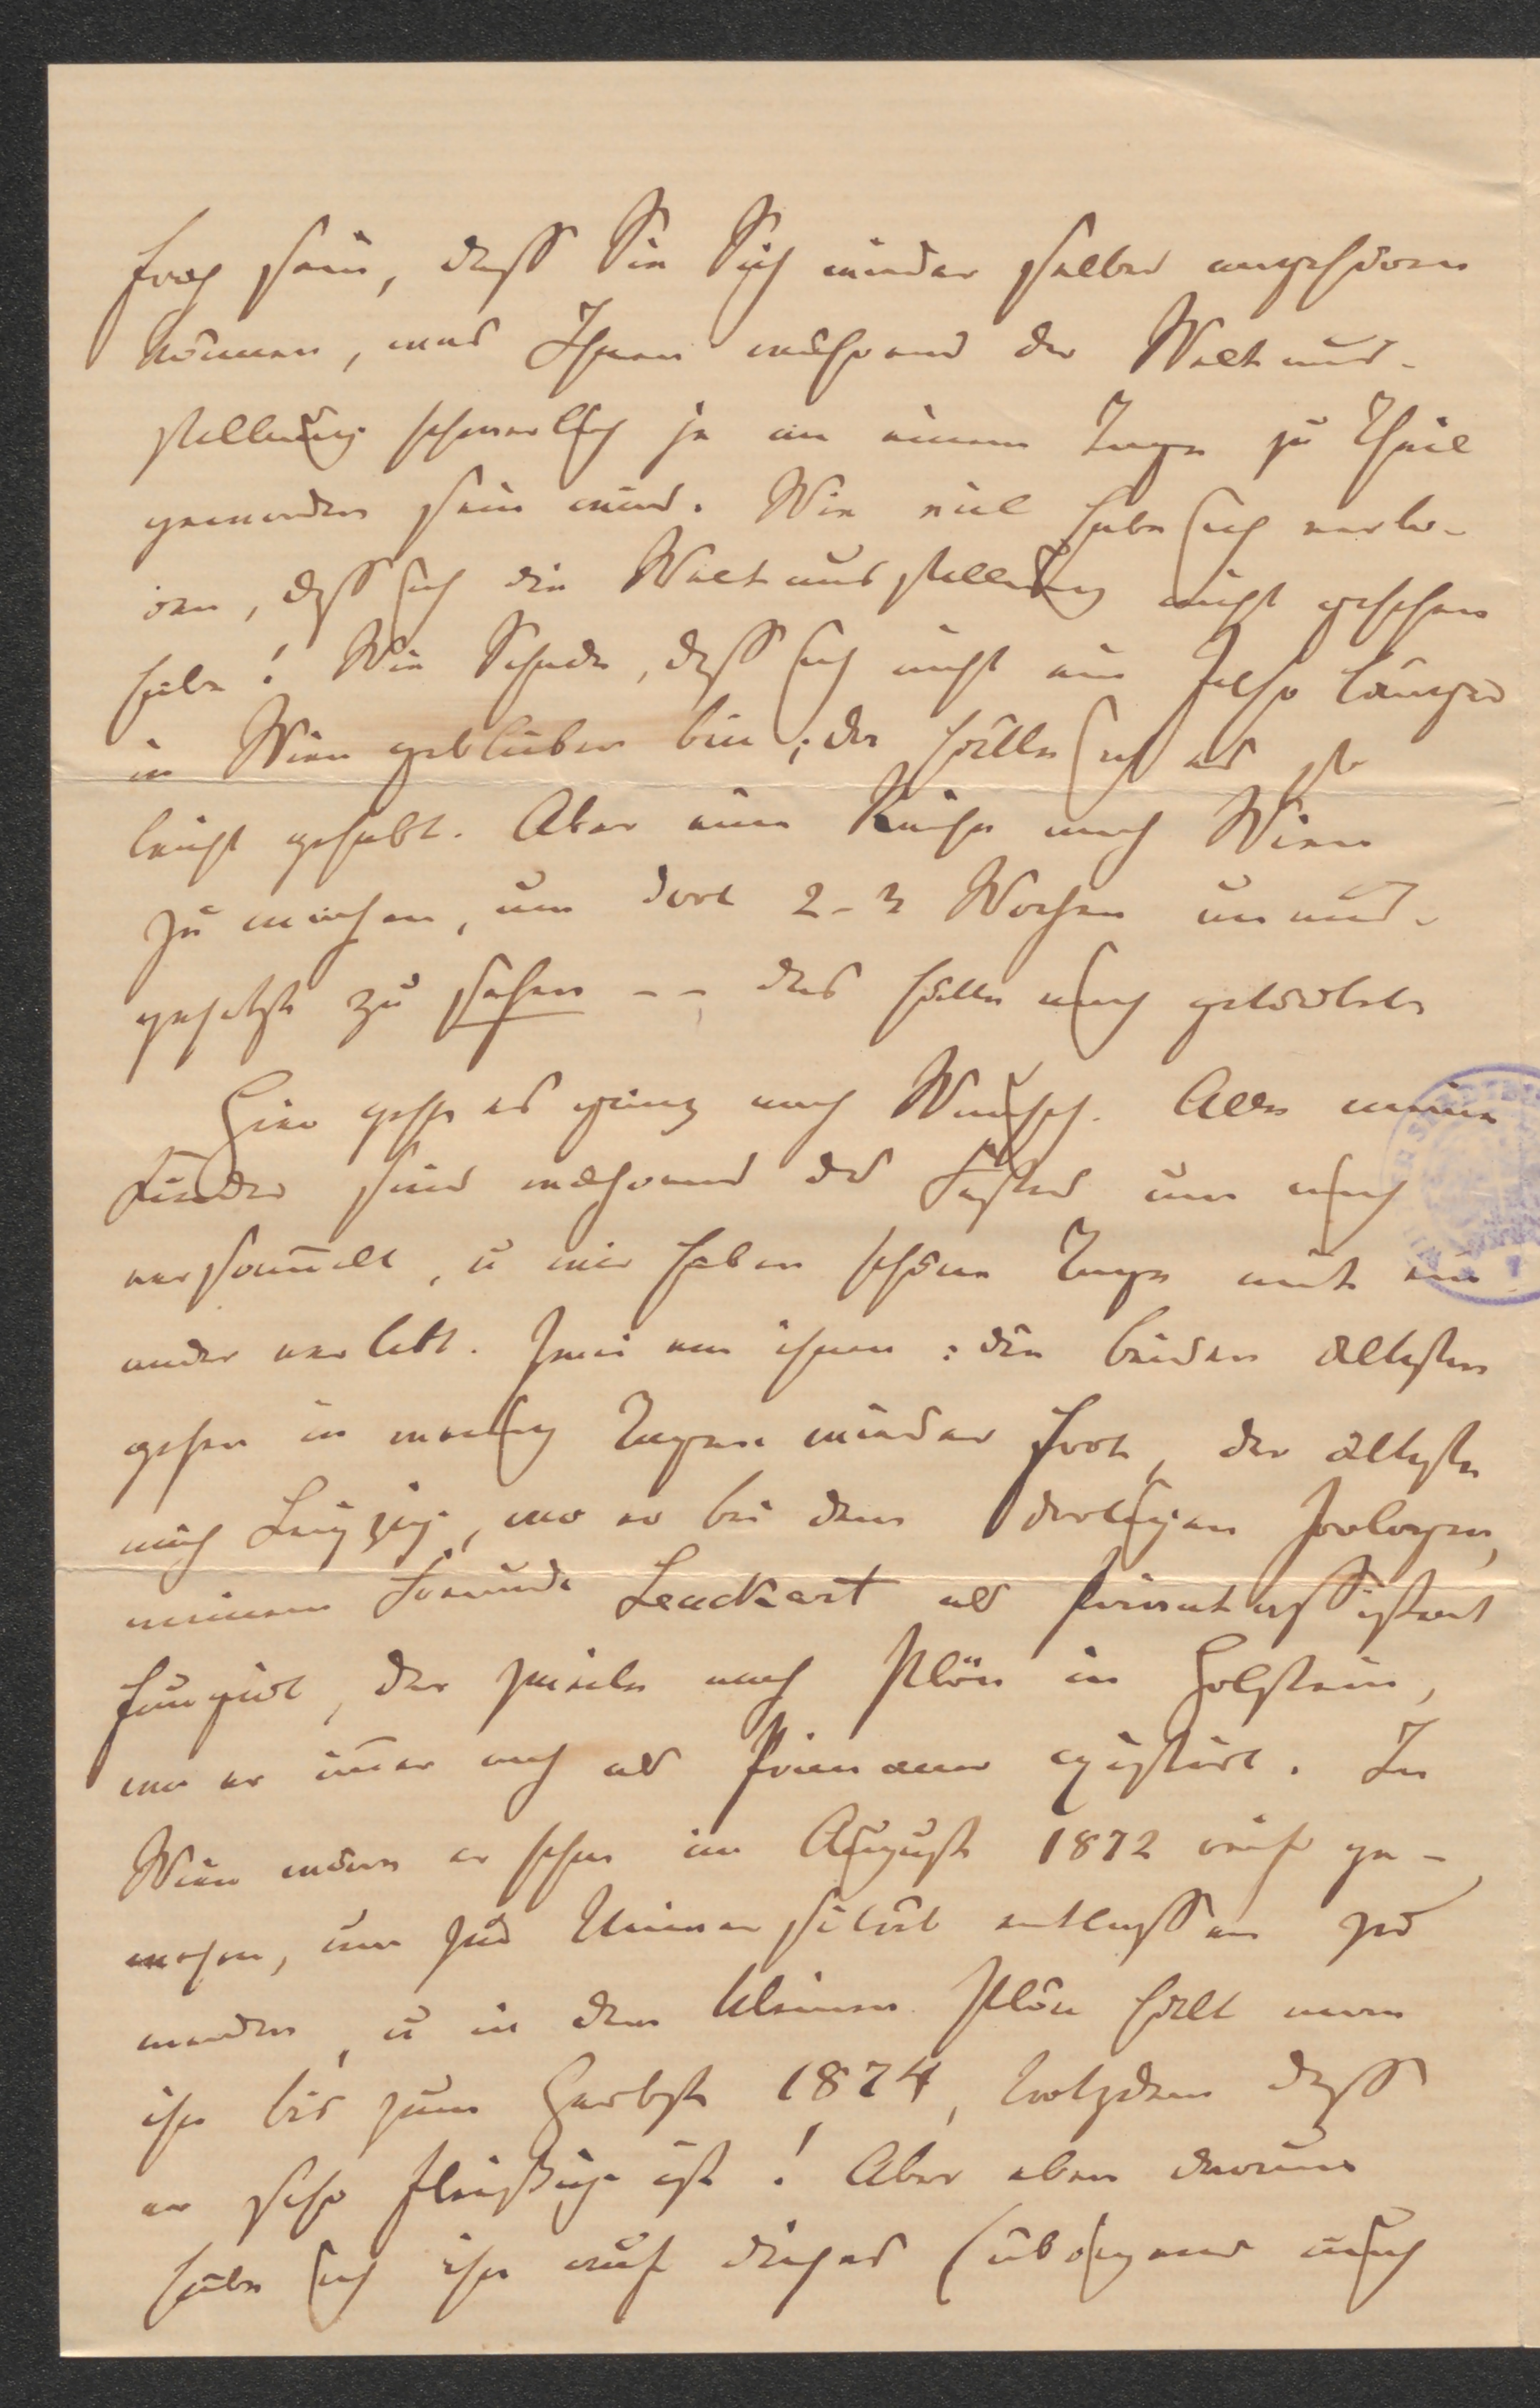 froh sein, dass Sie Sich wieder selber angehören
können, was Ihnen während der Weltaus-
stellung schwerlich je an einem Tage zu Theil
geworden sein wird. Wie viel habe ich verlo-
ren, dass ich die Weltausstellung nicht gesehen
habe! Wie Schade, dass ich nicht ein Jahr länger
in Wien geblieben bin; da hätte ich es so
leicht gehabt. Aber eine Reise nach Wien
zu machen, um dort 2-3 Wochen unaus-
gesetzt zu sehen -- das hätte mich getödtet.
Hier geht es ganz nach Wunsch. Alle meine
Kinder sind während des Festes um mich
versammelt, u wir haben schöne Tage mit ein
ander verlebt. Zwei von ihnen: die beiden ältesten
gehen in wenig Tagen wieder fort, der älteste
nach Leipzig, wo er bei dem dortigen Zoologen,
meinem Freunde Leuckart als Privatassistent
fungirt, der zweite nach Plön in Holstein,
wo er immer noch als Primaner existirt. In
Wien wäre er schon im August 1872 reif ge-
wesen, um zur Universität entlassen zu
werden, u in dem kleinen Plön hält man
ihn bis zum Herbst 1874, trotzdem dass
er sehr fleißig ist! Aber eben darum
habe ich ihn auf dieses (übrigens auch